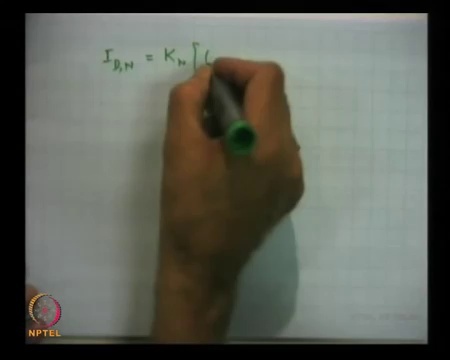 I_{D,N} = K_n [(
NPTEL